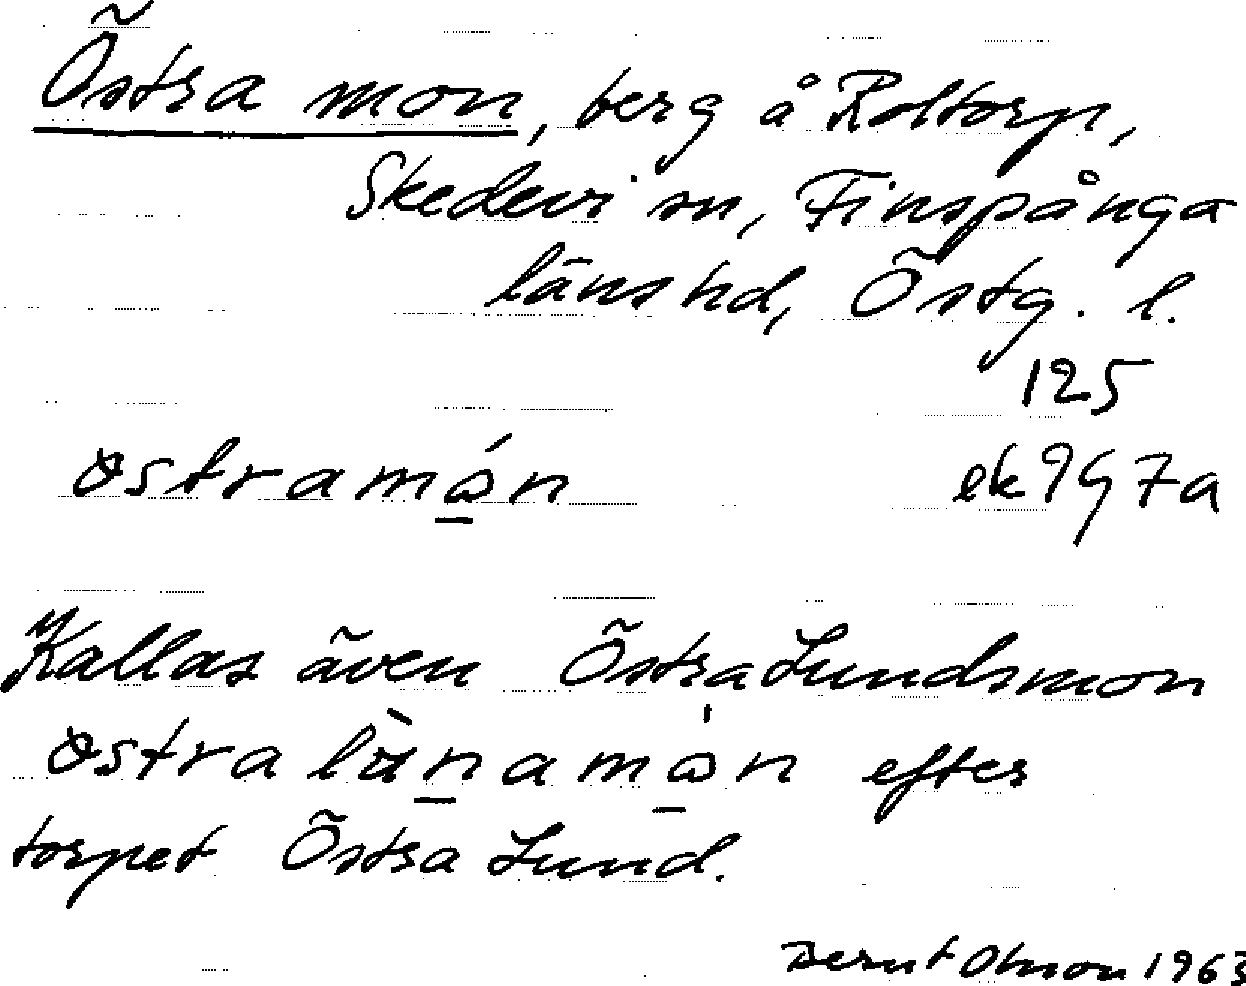 Östra mon, berg å Roltorp,
Skedevi sn, Finspånga
länshd, Östg. l.
125
ek 967a
Kallas även Östra Lundsmon
efter
torpet Östra Lund.
Bernt Olsson 1963